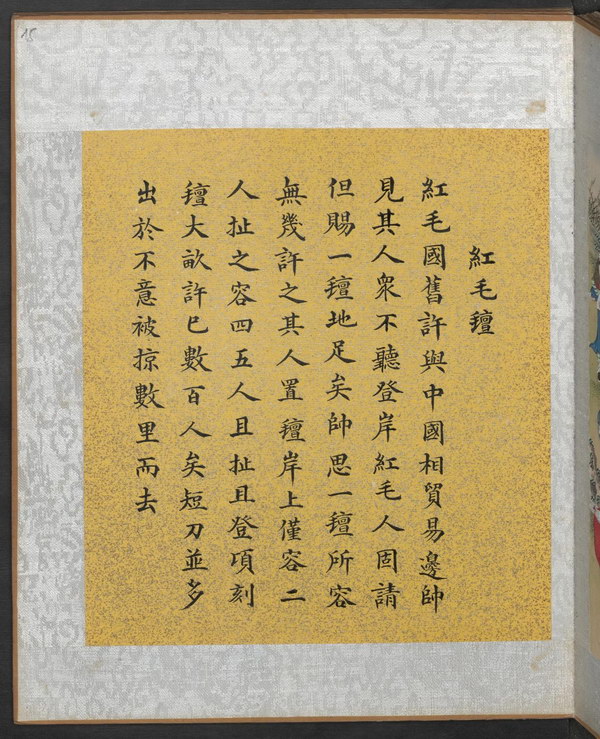 18
紅毛氊
紅毛國舊許與中國相貿易邊帥
見其人衆不聽登岸紅毛人固請
但賜一氊地足矣帥思一氊所容
無幾許之其人置氊岸上僅容二
人扯之容四五人且扯且登項刻
氊大畝許巳數百人矣短刀並多
出於不意被掠數里而去